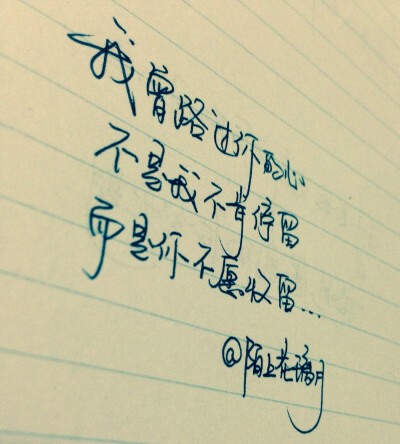 我曾路过你的心
不是我不肯停留
而是你不愿收留...
@陌上花璃月